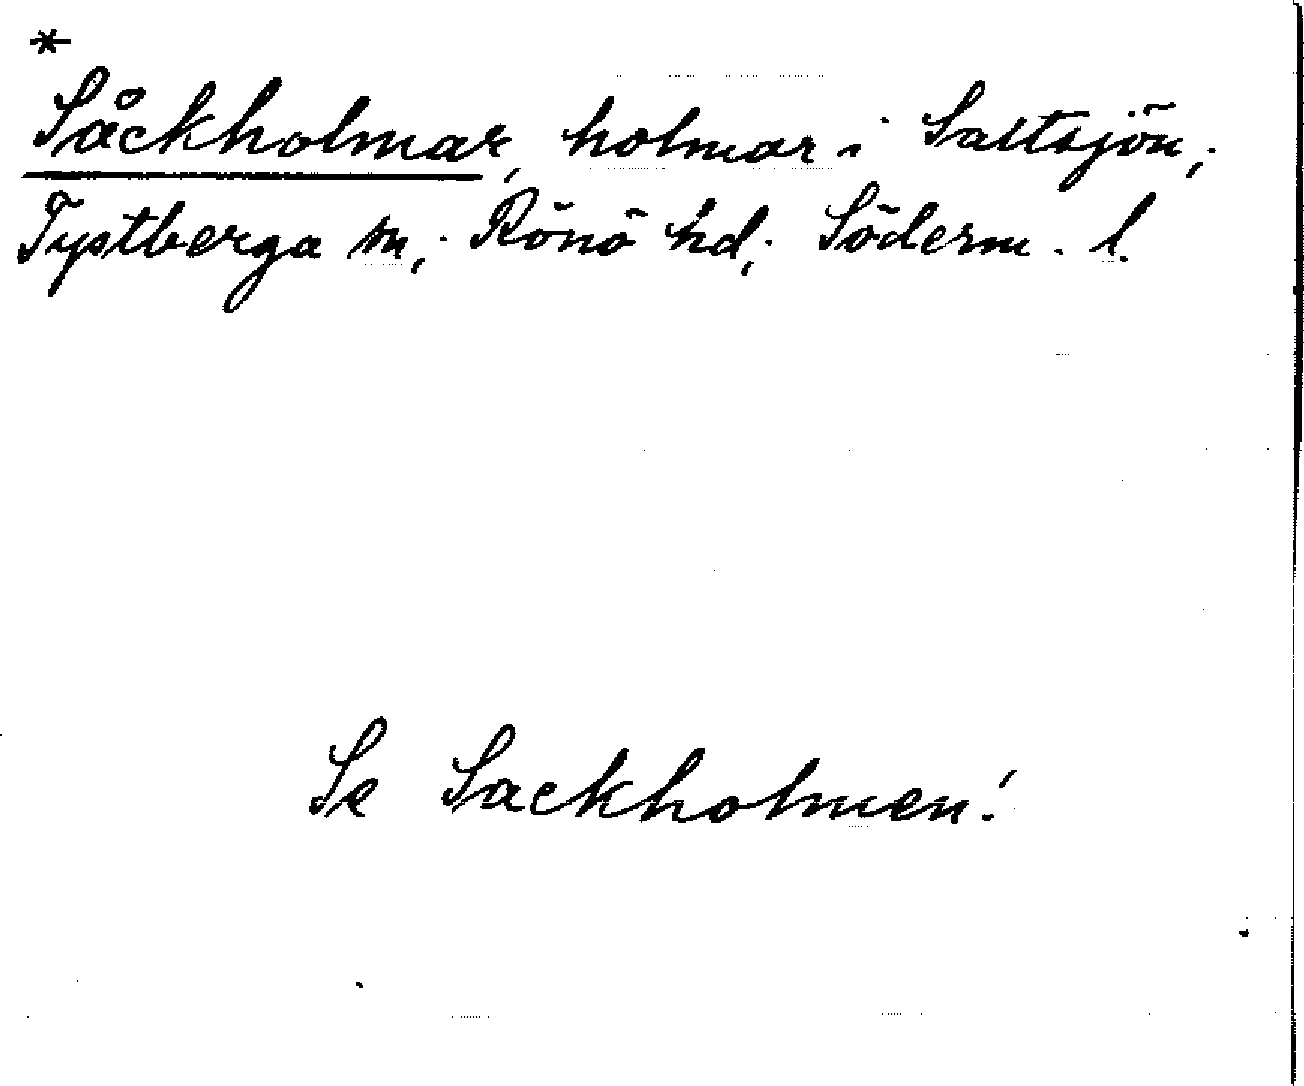 *
Såckholmar, holmar i Saltsjön,
Tystberga sn, Rönö hd, Söderm. l.
Se Sackholmen!